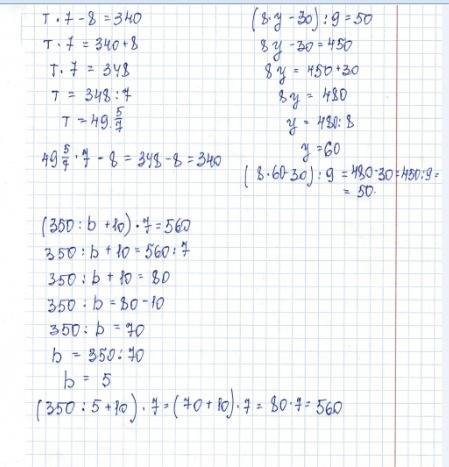 т · 7 - 8 = 340
т · 7 = 340 + 8
т · 7 = 348
т = 348 : 7
т = 49 · 5/7
49 5/7 · 7 - 8 = 348 - 8 = 340
(8 · y - 30) : 9 = 50
8y - 30 = 450
8y = 450 + 30
8y = 480
y = 480 : 8
y = 60
(8 · 60 - 30) : 9 = 480 - 30 = 450 : 9 =
= 50.
(350 : b + 10) · 7 = 560
350 : b + 10 = 560 : 7
350 : b + 10 = 80
350 : b = 80 - 10
350 : b = 70
b = 350 : 70
b = 5
(350 : 5 + 10) · 7 = (70 + 10) · 7 = 80 · 7 = 560